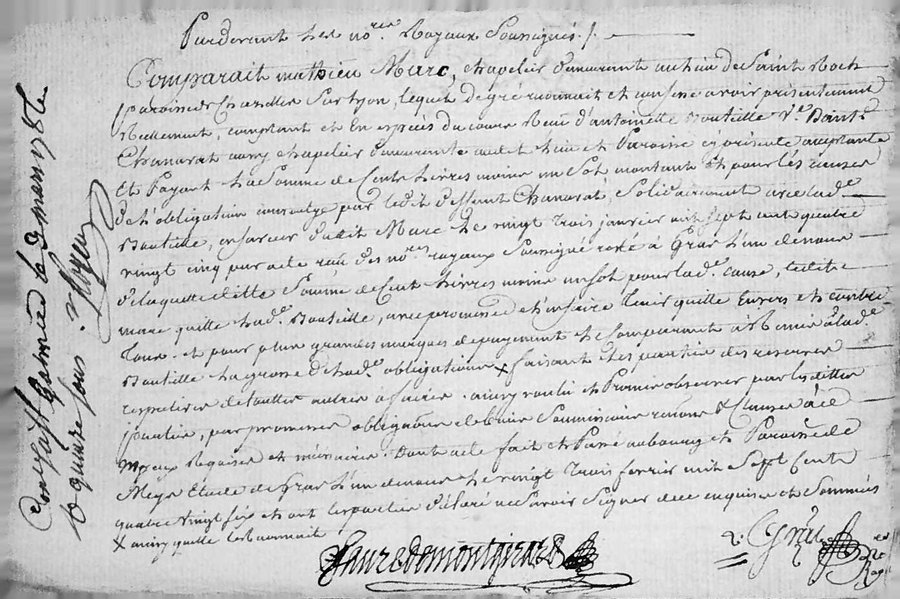 Pardevant Les no.res Royaux Soussignés ./.
Comparait mathieu Marc, chapelier demeurant au lieu de Saint Roch
paroisse Chazelles Sur lyon, lequel de gré reconnait et confesse avoir présentement
Réellement, comptant et En espèces du cours Reçu d'antoinette Bouteille V.e Bart.
Chanavat aussy chapelier demeurante audit Lieu et Paroisse cy présente acceptante
Et Payant La Somme de Cent Livres moins un Sol montant et pour Les causes
de L'obligation consentye par ledit deffunt Chanavat, Solidairement avec lad.e
Bouteille, en faveur dudit Marc Le vingt trois janvier mil sept cent quatre
vingt cinq par acte reçu des no.res royaux Soussigné resté à Gras L'un de nous
De laquelle ditte Somme de Cent Livres moins un sol pour lad.e cause, ledit
marc quitte Lad.e Bouteille, avec promesse et en faire Tenir quitte Envers et contre
Tous. et pour plus grandes marques de payement Le Comparant a remis à lad.e
Bouteille La grosse de Lad.e obligation x faisant Les parties des reserves
respectives de touttes autres affaires. ainsy voulu et Promis observer par lesdittes
parties, par promesses obligations de biens Soumissions renons & Clauses à ce
Requises et nécessaires. Dont acte fait et Passé au bourg et Paroisse de
Meys Etude de Gras L'un de nous Le vingt Trois fevrier mil Sept Cent
quatre vingt six et ont les parties déclaré ne Savoir Signer de ce enquises et Sommées
x ainsy quelle Le reconnait
Faure de montgirard
Gras
no.re
Roy.
Con.lé à St Galmier le 2 mars 1786
Reçu quinze sous